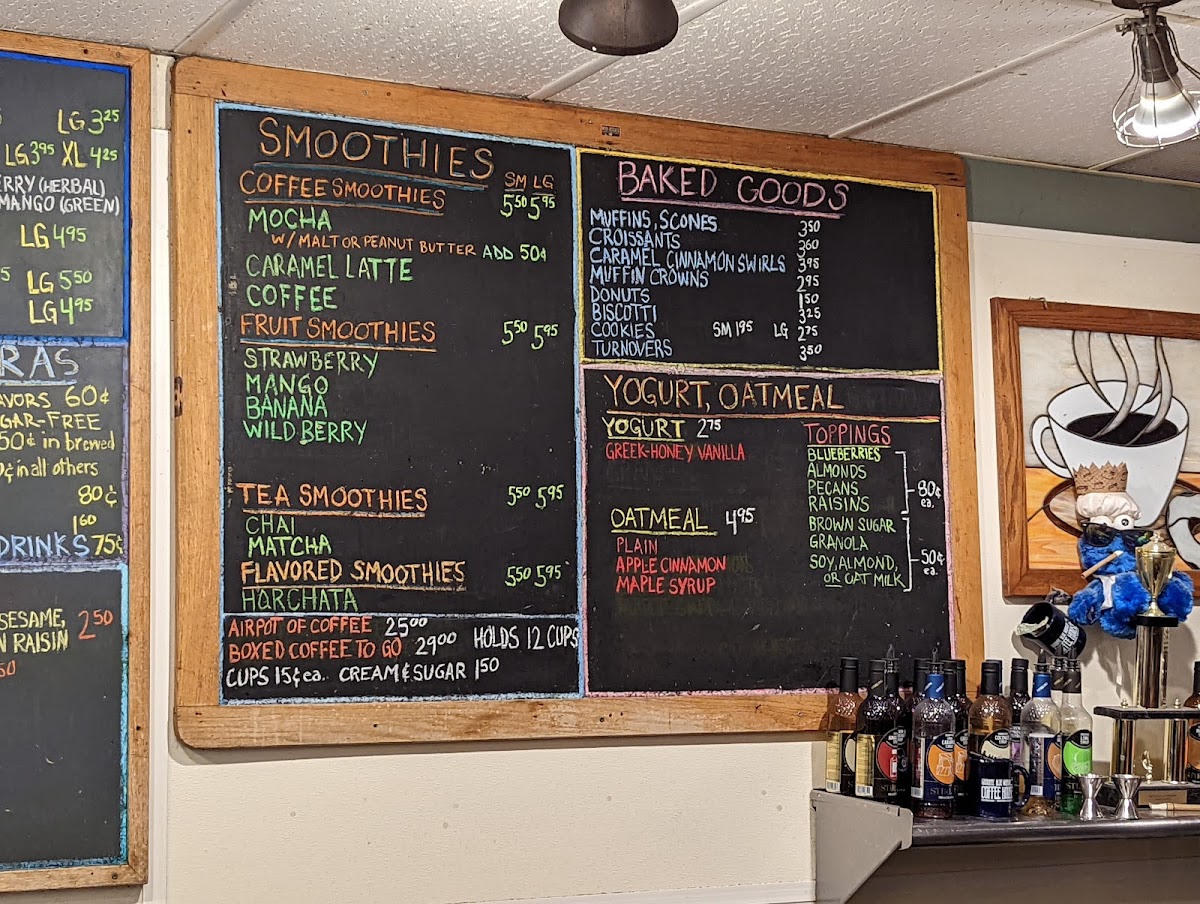 LG 3²⁵
LG 3⁹⁵ XL 4²⁵
ERRY (HERBAL)
MANGO (GREEN)
LG 4⁹⁵
LG 5⁵⁰
LG 4⁹⁵
RAS
AVORS 60¢
GAR-FREE
50¢ in brewed
¢ in all others
80¢
1⁶⁰
DRINKS 75¢
SESAME,
N RAISIN 2⁵⁰
50
SMOOTHIES
SM LG
COFFEE SMOOTHIES 5⁵⁰ 5⁹⁵
MOCHA
W/ MALT OR PEANUT BUTTER ADD 50¢
CARAMEL LATTE
COFFEE
FRUIT SMOOTHIES 5⁵⁰ 5⁹⁵
STRAWBERRY
MANGO
BANANA
WILD BERRY
TEA SMOOTHIES 5⁵⁰ 5⁹⁵
CHAI
MATCHA
FLAVORED SMOOTHIES 5⁵⁰ 5⁹⁵
HORCHATA
AIRPOT OF COFFEE 25⁰⁰
BOXED COFFEE TO GO 29⁰⁰ HOLDS 12 CUPS
CUPS 15¢ ea. CREAM & SUGAR 1⁵⁰
BAKED GOODS
MUFFINS, SCONES 3⁵⁰
CROISSANTS 3⁶⁰
CARAMEL CINNAMON SWIRLS 3⁹⁵
MUFFIN CROWNS 2⁹⁵
DONUTS 1⁵⁰
BISCOTTI 3²⁵
COOKIES SM 1⁹⁵ LG 2⁷⁵
TURNOVERS 3⁵⁰
YOGURT, OATMEAL
YOGURT 2⁷⁵
GREEK-HONEY VANILLA
OATMEAL 4⁹⁵
PLAIN
APPLE CINNAMON
MAPLE SYRUP
TOPPINGS
BLUEBERRIES
ALMONDS
PECANS
RAISINS
80¢ ea.
BROWN SUGAR
GRANOLA
SOY, ALMOND,
OR OAT MILK
50¢ ea.
COFFEE HOUSE